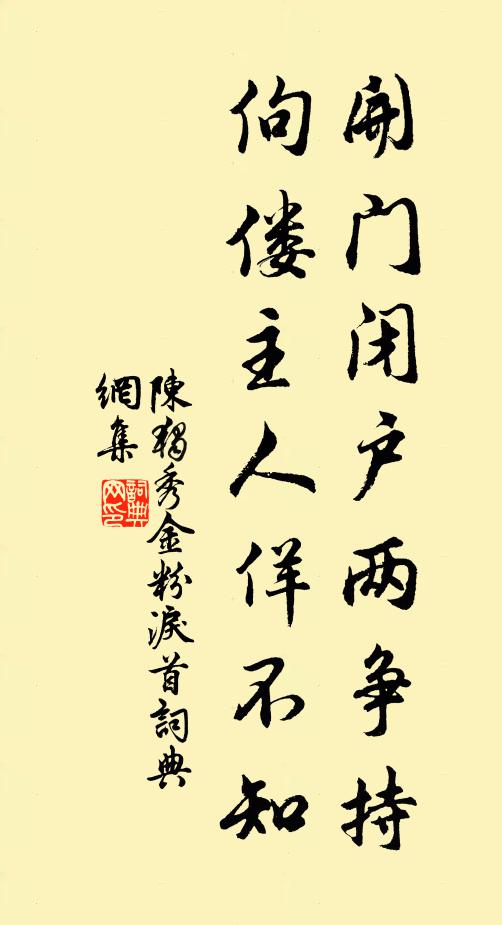 開门闭户两争持
佝偻主人佯不知
陳獨秀金粉淚首詞典
網集
詞典
网印